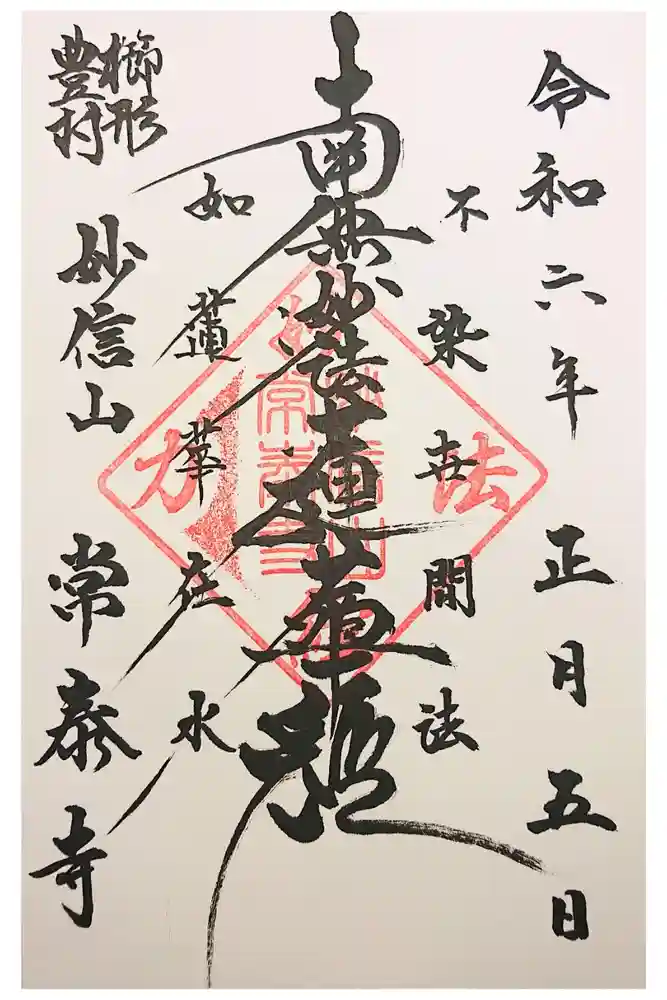 令和六年 正月五日
不染世間法
南無妙法蓮華経
如蓮華在水
櫛形
豊村
妙信山
常泰寺
法